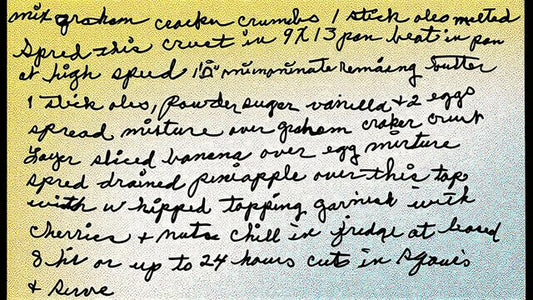 mix graham cracker crumbs 1 stick oleo melted
Spred this crust in 9X13 pan beat in pan
at high speed 10 minimoninate remaing butter
1 stick oleo, powder suger vanilla + 2 eggs
spread mixture over graham craker crust
Layer sliced banana over egg mixture
spred drained pineapple over this top
with whipped topping garnish with
cherries + nuts chill in fridge at least
8 hr or up to 24 hours cuts in
+ serve